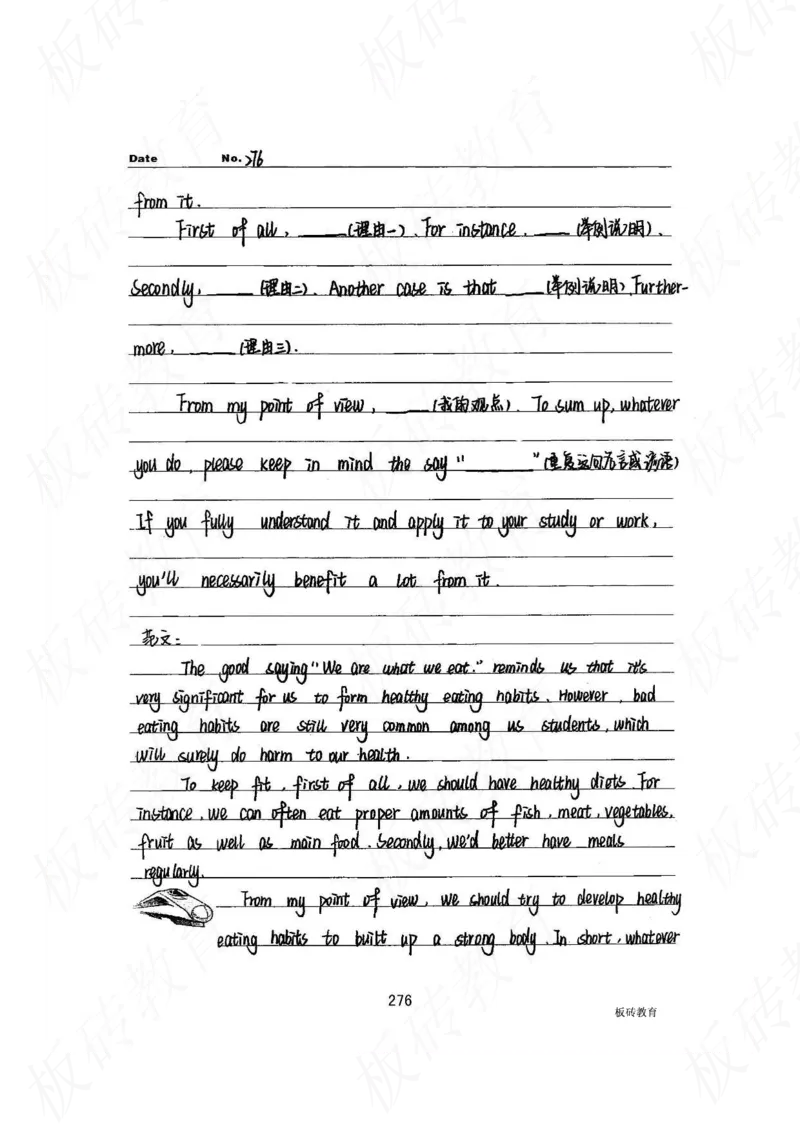 Date No. 276
from it.
First of all, ____(理由一). For instance, ____(举例说明).
Secondly, ____(理由二). Another case is that ____(举例说明). Further-
more, ____(理由三).
From my point of view, ____(我的观点). To sum up, whatever
you do, please keep in mind the say "____"(重复这句名言或谚语)
If you fully understand it and apply it to your study or work,
you'll necessarily benefit a lot from it.
范文:
The good saying "We are what we eat." reminds us that it's
very significant for us to form healthy eating habits. However, bad
eating habits are still very common among us students, which
will surely do harm to our health.
To keep fit, first of all, we should have healthy diets. For
instance, we can often eat proper amounts of fish, meat, vegetables,
fruit as well as main food. Secondly, we'd better have meals
regularly.
From my point of view, we should try to develop healthy
eating habits to built up a strong body. In short, whatever
276
板砖教育